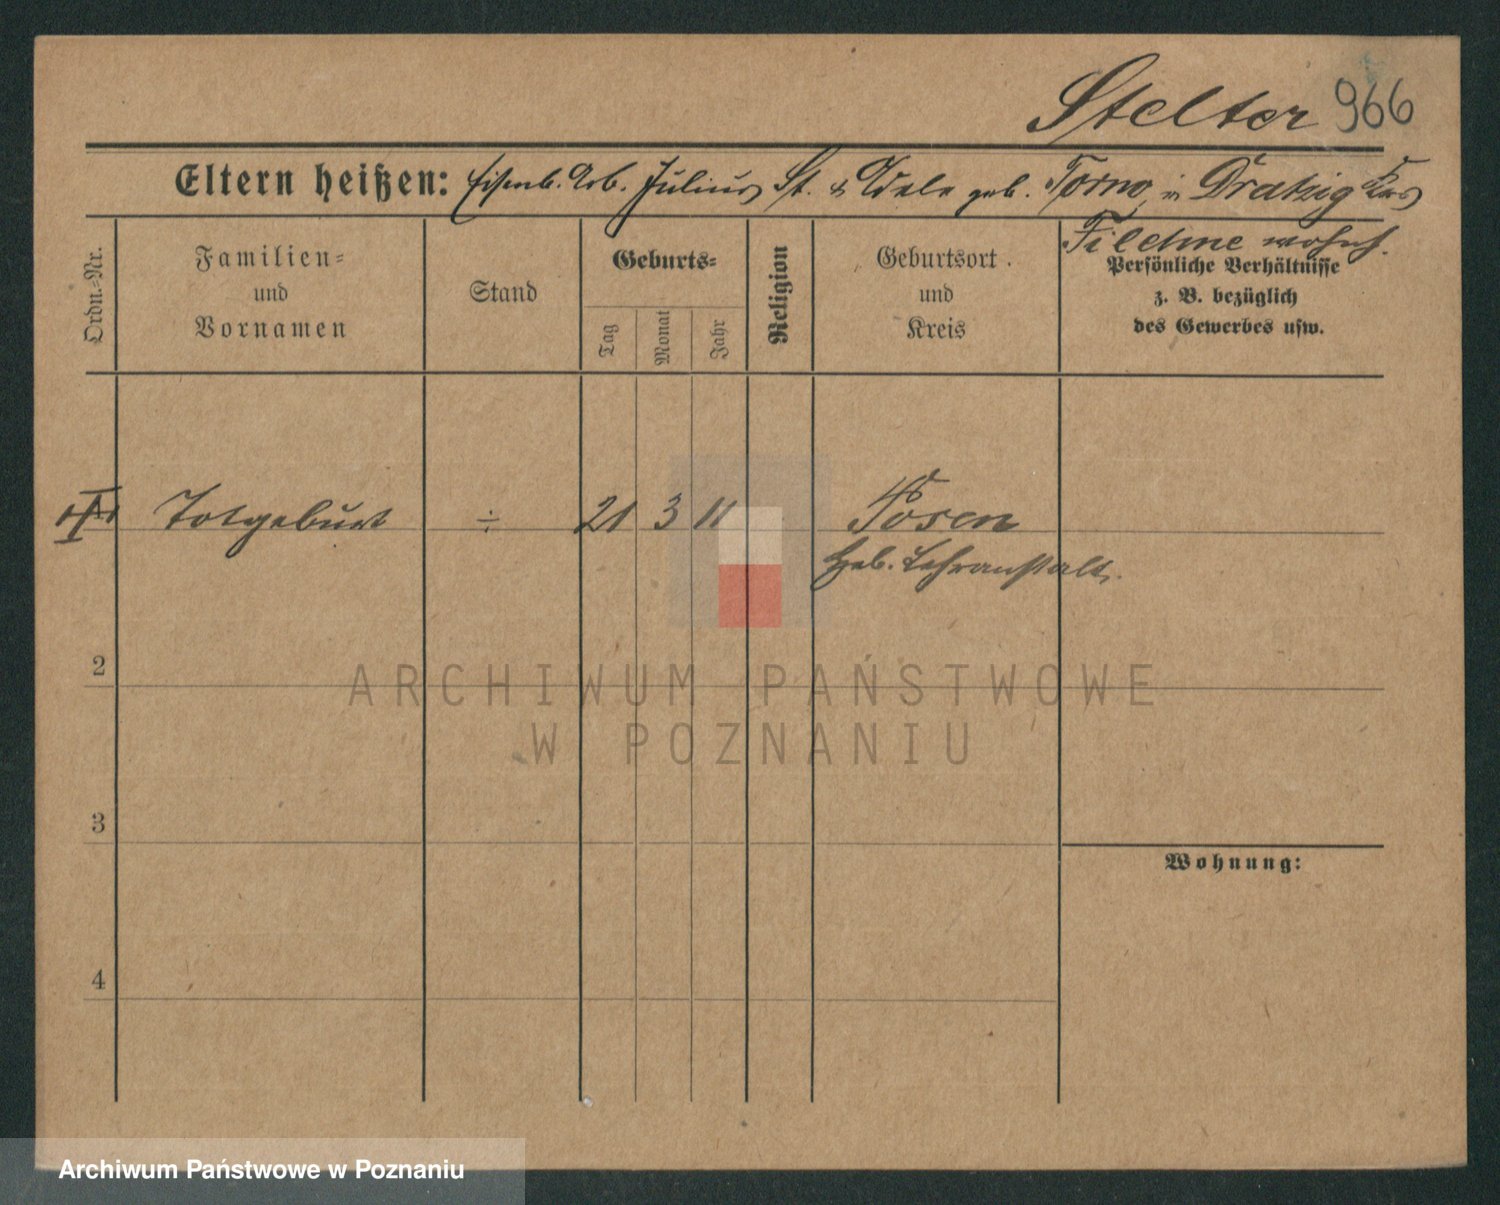 Stelter 966
Eltern heißen: Eisenb. Arb. Julius St. & Adele geb. Torno in Dratzig Krs
Filehne wohnh.
Ordn.-Nr.
Familien-
und
Vornamen
Stand
Geburts-
Tag
Monat
Jahr
Religion
Geburtsort
und
Kreis
Persönliche Verhältnisse
z. B. bezüglich
des Gewerbes usw.
1 Totgeburt ÷ 21 3 11 Posen
Heb. Lehranstalt.
2
3
4
Wohnung:
ARCHIWUM PAŃSTWOWE
W POZNANIU
Archiwum Państwowe w Poznaniu